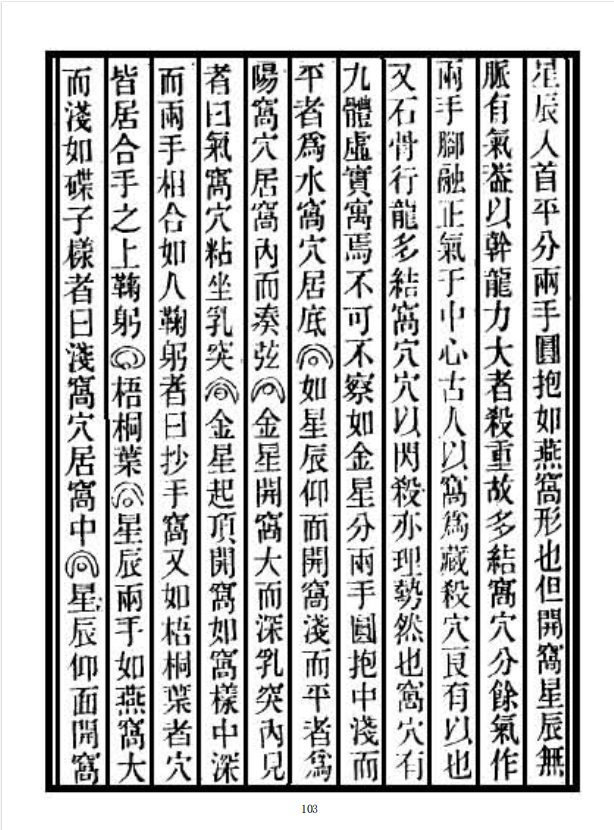 星辰人首平分兩手圓抱如燕窩形也但開窩星辰無
脈有氣蓋以幹龍力大者殺重故多結窩穴分餘氣作
兩手腳融正氣于中心古人以窩爲藏殺穴良有以也
又石骨行龍多結窩穴穴以閃殺亦理勢然也窩穴有
九體虛實寓焉不可不察如金星分兩手圓抱中淺而
平者爲水窩穴居底如星辰仰面開窩淺而平者爲
陽窩穴居窩內而奏弦金星開窩大而深乳突內見
者曰氣窩穴粘坐乳突金星起頂開窩如窩樣中深
而兩手相合如人鞠躬者曰抄手窩又如梧桐葉者穴
皆居合手之上鞠躬梧桐葉星辰兩手如燕窩大
而淺如碟子樣者曰淺窩穴居窩中星辰仰面開窩
103